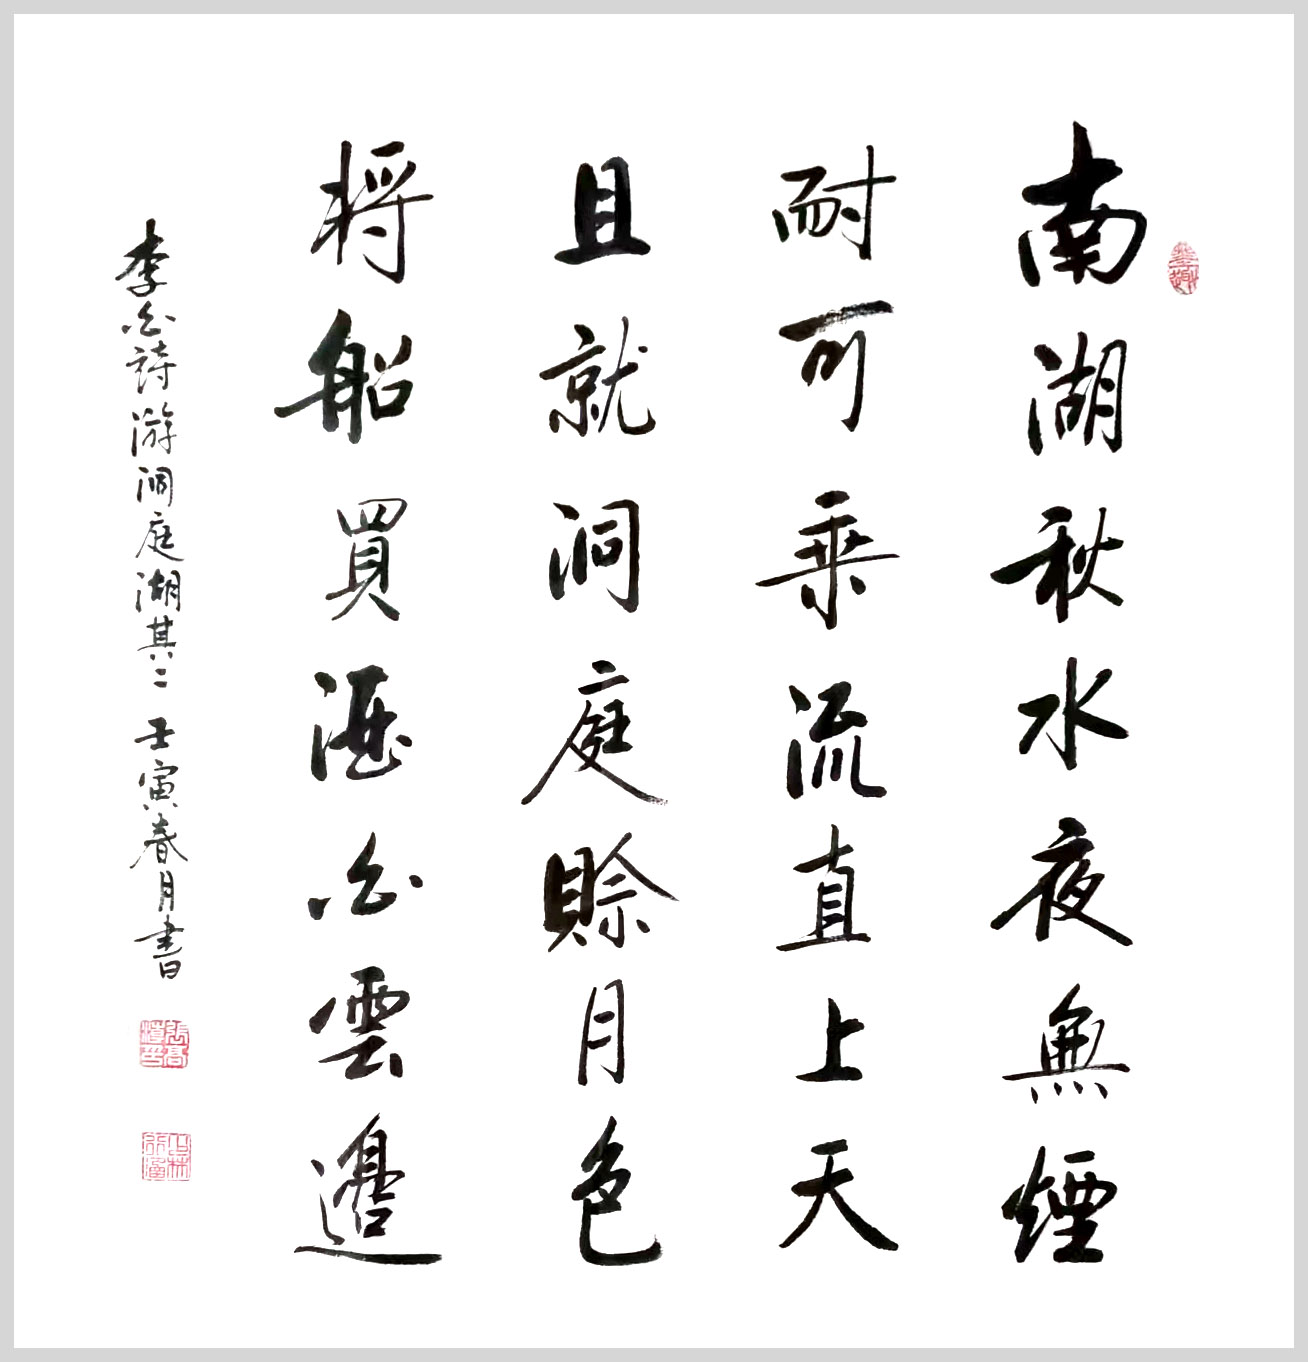 南湖秋水夜無煙
耐可乘流直上天
且就洞庭賒月色
將船買酒白雲邊
李白詩游洞庭湖其二 壬寅春月書